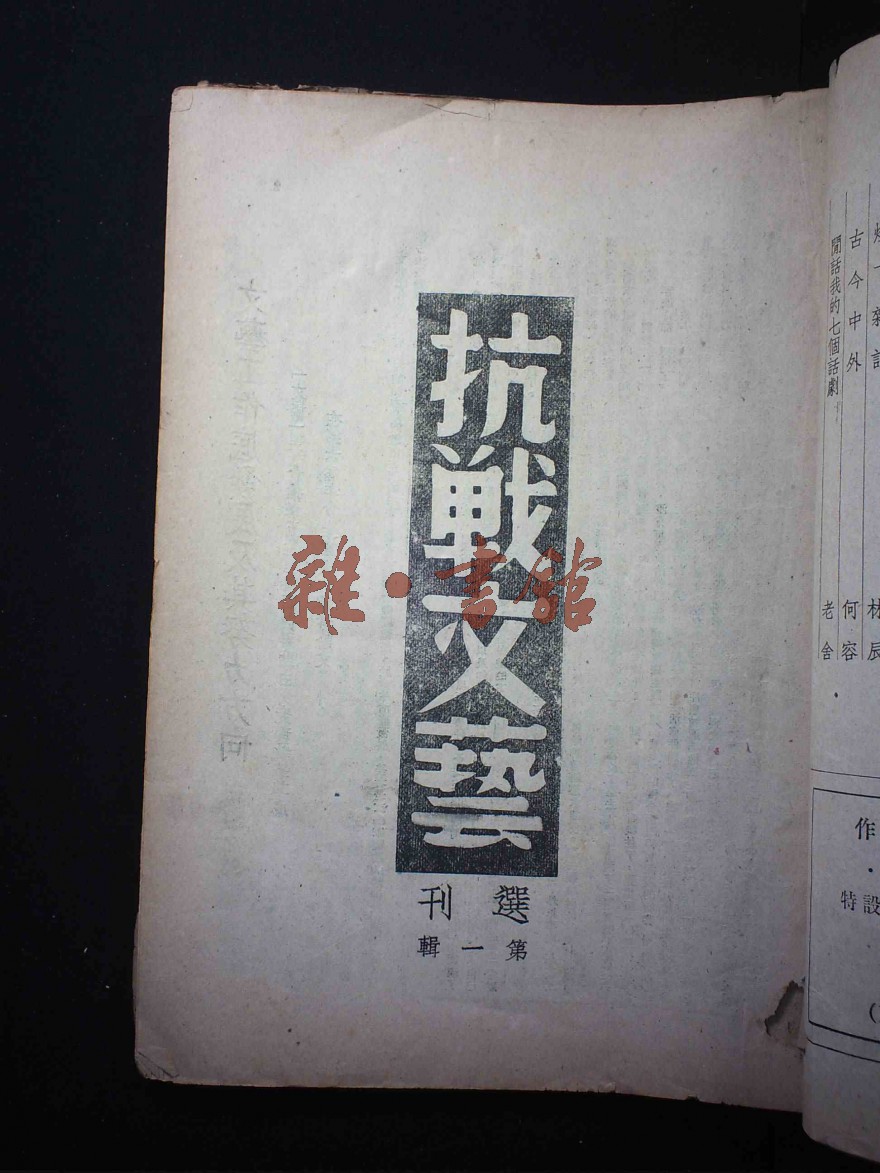 抗戰文藝
選刊
第一輯
雜·書館
古今中外 何容
閒話我的七個話劇 老舍
林辰
作
特設